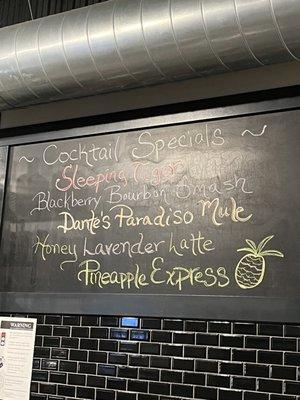 ~ Cocktail Specials ~
Sleeping Tiger
Blackberry Bourbon Smash
Dante's Paradiso Mule
Honey Lavender Latte
Pineapple Express
WARNING